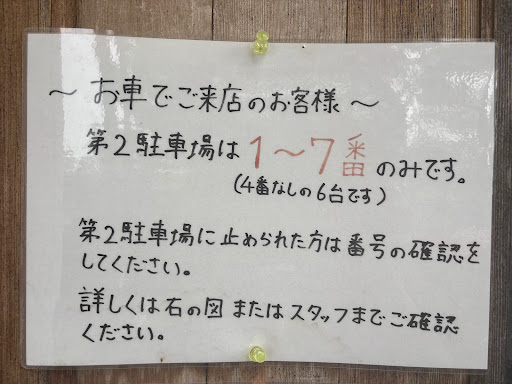 ～ お車でご来店のお客様 ～
第2駐車場は 1～7番 のみです。
(4番なしの6台です)
第2駐車場に止められた方は番号の確認を
してください。
詳しくは右の図 またはスタッフまでご確認
ください。